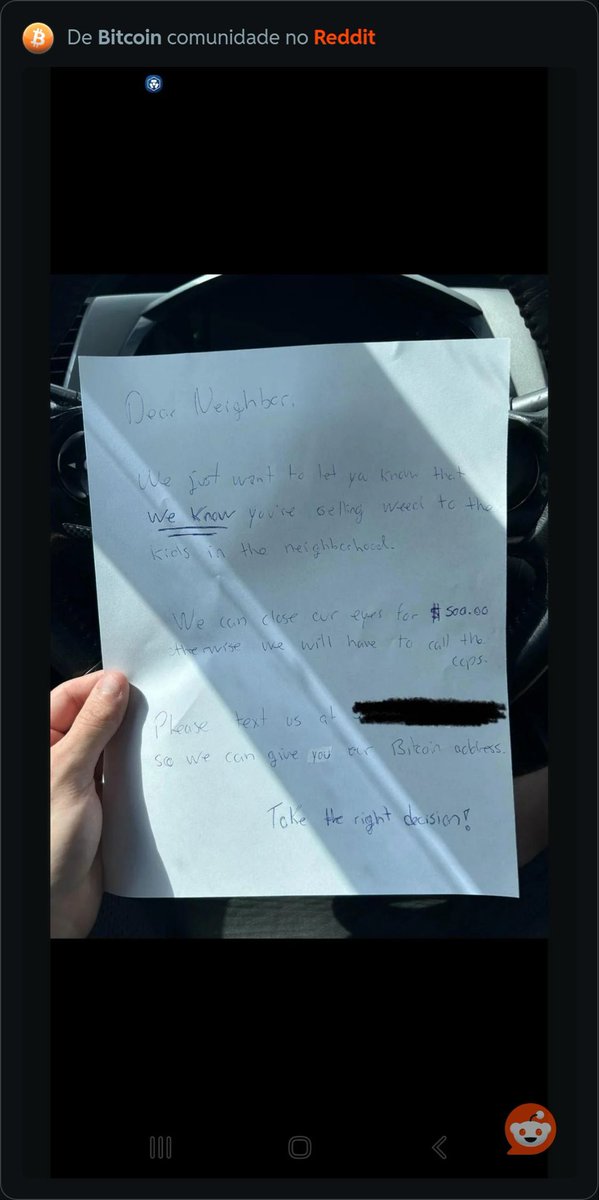 De Bitcoin comunidade no Reddit
Dear Neighbor,
We just want to let ya know that
we know you're selling weed to the
kids in the neighborhood.
We can close our eyes for $500.00
otherwise we will have to call the
cops.
Please text us at
so we can give you our Bitcoin address.
Take the right decision!